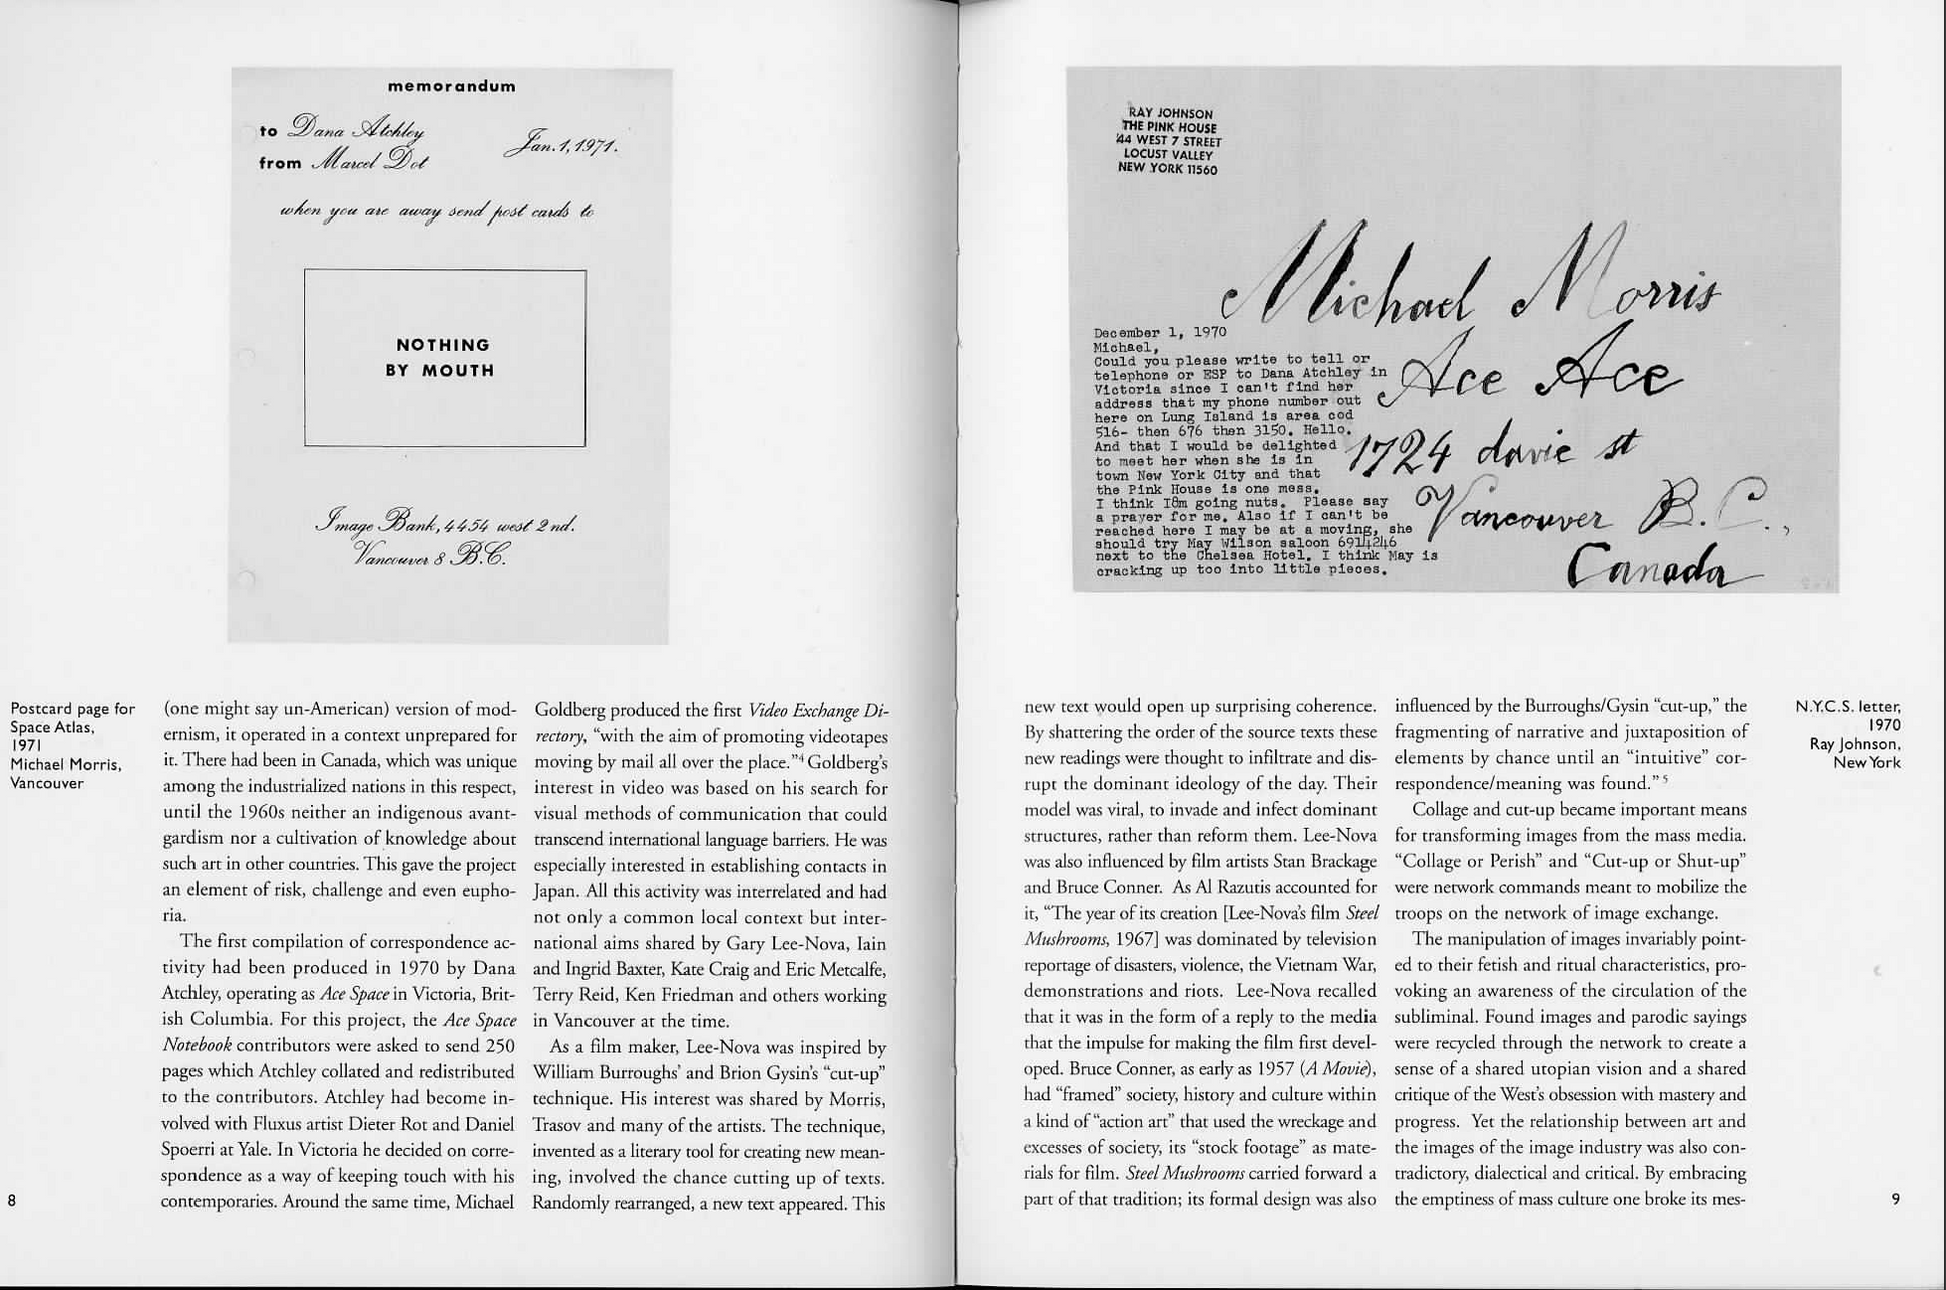 memorandum
to Dana Atchley
Jan. 1, 1971.
from Marcel Dot
when you are away send post cards to
NOTHING
BY MOUTH
Image Bank, 4454 west 2nd.
Vancouver 8 B.C.
Postcard page for
Space Atlas,
1971
Michael Morris,
Vancouver
(one might say un-American) version of mod-
ernism, it operated in a context unprepared for
it. There had been in Canada, which was unique
among the industrialized nations in this respect,
until the 1960s neither an indigenous avant-
gardism nor a cultivation of knowledge about
such art in other countries. This gave the project
an element of risk, challenge and even eupho-
ria.
The first compilation of correspondence ac-
tivity had been produced in 1970 by Dana
Atchley, operating as Ace Space in Victoria, Brit-
ish Columbia. For this project, the Ace Space
Notebook contributors were asked to send 250
pages which Atchley collated and redistributed
to the contributors. Atchley had become in-
volved with Fluxus artist Dieter Rot and Daniel
Spoerri at Yale. In Victoria he decided on corre-
spondence as a way of keeping touch with his
contemporaries. Around the same time, Michael
8
Goldberg produced the first Video Exchange Di-
rectory, “with the aim of promoting videotapes
moving by mail all over the place.”4 Goldberg’s
interest in video was based on his search for
visual methods of communication that could
transcend international language barriers. He was
especially interested in establishing contacts in
Japan. All this activity was interrelated and had
not only a common local context but inter-
national aims shared by Gary Lee-Nova, Iain
and Ingrid Baxter, Kate Craig and Eric Metcalfe,
Terry Reid, Ken Friedman and others working
in Vancouver at the time.
As a film maker, Lee-Nova was inspired by
William Burroughs’ and Brion Gysin’s “cut-up”
technique. His interest was shared by Morris,
Trasov and many of the artists. The technique,
invented as a literary tool for creating new mean-
ing, involved the chance cutting up of texts.
Randomly rearranged, a new text appeared. This
RAY JOHNSON
THE PINK HOUSE
44 WEST 7 STREET
LOCUST VALLEY
NEW YORK 11560
Michael Morris
Ace Ace
1724 davie st
Vancouver B.C.,
Canada
December 1, 1970
Michael,
Could you please write to tell or
telephone or ESP to Dana Atchley in
Victoria since I can't find her
address that my phone number out
here on Lung Island is area cod
516- then 676 then 3150. Hello.
And that I would be delighted
to meet her when she is in
town New York City and that
the Pink House is one mess.
I think I8m going nuts. Please say
a prayer for me. Also if I can't be
reached here I may be at a moving, she
should try May Wilson saloon 6914246
next to the Chelsea Hotel. I think May is
cracking up too into little pieces.
new text would open up surprising coherence.
By shattering the order of the source texts these
new readings were thought to infiltrate and dis-
rupt the dominant ideology of the day. Their
model was viral, to invade and infect dominant
structures, rather than reform them. Lee-Nova
was also influenced by film artists Stan Brackage
and Bruce Conner. As Al Razutis accounted for
it, “The year of its creation [Lee-Nova’s film Steel
Mushrooms, 1967] was dominated by television
reportage of disasters, violence, the Vietnam War,
demonstrations and riots. Lee-Nova recalled
that it was in the form of a reply to the media
that the impulse for making the film first devel-
oped. Bruce Conner, as early as 1957 (A Movie),
had “framed” society, history and culture within
a kind of “action art” that used the wreckage and
excesses of society, its “stock footage” as mate-
rials for film. Steel Mushrooms carried forward a
part of that tradition; its formal design was also
influenced by the Burroughs/Gysin “cut-up,” the
fragmenting of narrative and juxtaposition of
elements by chance until an “intuitive” cor-
respondence/meaning was found.” 5
Collage and cut-up became important means
for transforming images from the mass media.
“Collage or Perish” and “Cut-up or Shut-up”
were network commands meant to mobilize the
troops on the network of image exchange.
The manipulation of images invariably point-
ed to their fetish and ritual characteristics, pro-
voking an awareness of the circulation of the
subliminal. Found images and parodic sayings
were recycled through the network to create a
sense of a shared utopian vision and a shared
critique of the West’s obsession with mastery and
progress. Yet the relationship between art and
the images of the image industry was also con-
tradictory, dialectical and critical. By embracing
the emptiness of mass culture one broke its mes-
N.Y.C.S. letter,
1970
Ray Johnson,
New York
9